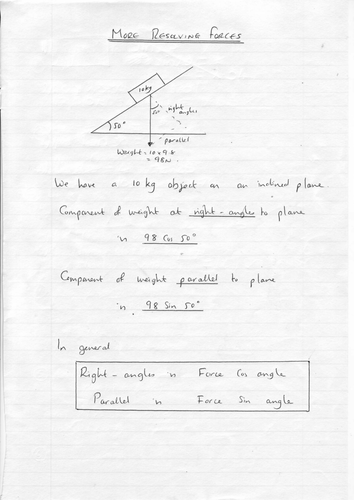 MORE RESOLVING FORCES
10kg
50° right
angles
50°
parallel
Weight = 10 x 9.8
= 98N
We have a 10 kg object on an inclined plane
Component of weight at right-angles to plane
is 98 Cos 50°
Component of weight parallel to plane
is 98 Sin 50°
In general
Right-angles is Force Cos angle
Parallel is Force Sin angle